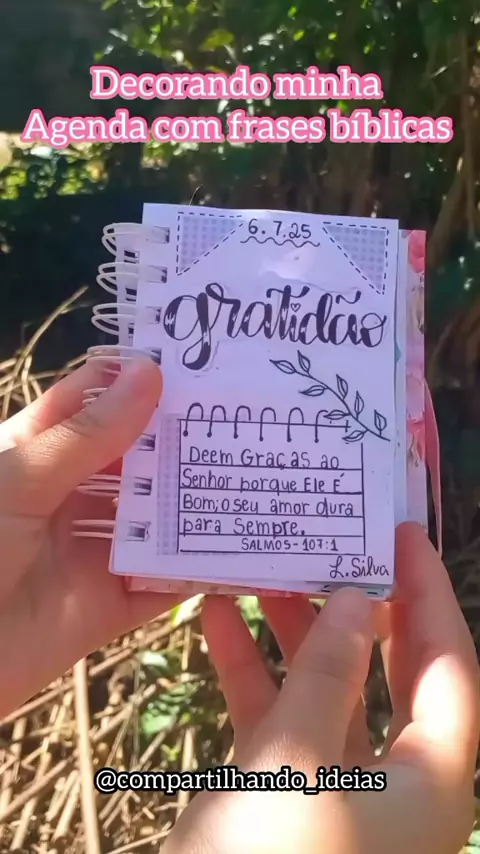 Decorando minha
Agenda com frases bíblicas
6.7.25
gratidão
Deem Graças ao
Senhor porque Ele É
Bom; o seu amor dura
para Sempre.
SALMOS-107:1
L. Silva
@compartilhando_ideias